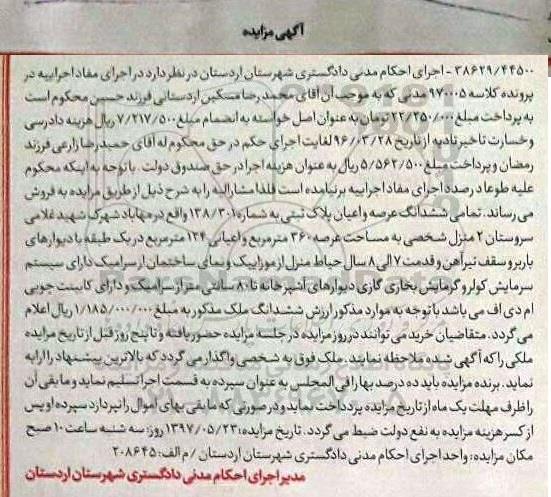 آگهی مزایده
۳۸۶۲۹/۴۴۵۰۰ - اجرای احکام مدنی دادگستری شهرستان اردستان در نظر دارد در اجرای مفاد اجراییه در
پرونده کلاسه ۹۷۰۰۰۵ مدنی که به موجب آن آقای محمد رضا مسکین اردستانی فرزند حسین محکوم است
به پرداخت مبلغ ۲۲/۲۵۰/۰۰۰ تومان به عنوان اصل خواسته به انضمام مبلغ ۷/۲۱۷/۵۰۰ ریال هزینه دادرسی
و خسارت تاخیر تادیه از تاریخ ۹۶/۰۳/۲۸ لغایت اجرای حکم در حق محکوم له آقای حمیدرضا زارعی فرزند
رمضان و پرداخت مبلغ ۵/۵۶۲/۵۰۰ ریال به عنوان هزینه اجرا در حق صندوق دولت . با توجه به اینکه محکوم
علیه طوعا در صدد اجرای مفاد اجراییه برنیامده است فلذا مشارالیه را به شرح ذیل از طریق مزایده به فروش
می رساند . تمامی ششدانگ عرصه و اعیان پلاک ثبتی به شماره ۱۳۸/۳۰۱ واقع در مهاباد شهرک شهید غلامی
سروستان ۲ منزل شخصی به مساحت عرصه ۳۶۰ مترمربع و اعیانی ۱۳۴ مترمربع در یک طبقه با دیوارهای
باربر و سقف تیرآهن و قدمت ۷ الی ۸ سال حیاط منزل از موزاییک و نمای ساختمان از سرامیک دارای سیستم
سرمایش کولر و گرمایش بخاری گازی دیوارهای آشپزخانه تا ۸۰ سانتی متر از سرامیک و دارای کابینت چوبی
ام دی اف می باشد با توجه به موارد مذکور ارزش ششدانگ ملک مذکور به مبلغ ۱/۱۸۵/۰۰۰/۰۰۰ ریال اعلام
می گردد . متقاضیان خرید می توانند در روز مزایده در جلسه مزایده حضور یافته و تا پنج روز قبل از تاریخ مزایده
ملکی را که آگهی شده ملاحظه نمایند . ملک فوق به شخصی واگذار می گردد که بالاترین پیشنهاد را ارایه
نماید . برنده مزایده باید ده درصد بها را فی المجلس به عنوان سپرده به قسمت اجرا تسلیم نماید و مابقی آن
را ظرف مهلت یک ماه از تاریخ مزایده پرداخت نماید و در صورتی که مابقی بهای اموال را نپردازد سپرده او پس
از کسر هزینه مزایده به نفع دولت ضبط می گردد . تاریخ مزایده: ۱۳۹۷/۰۵/۲۳ روز: سه شنبه ساعت ۱۰ صبح
مکان مزایده: واحد اجرای احکام مدنی دادگستری شهرستان اردستان / م الف: ۲۰۸۶۴۵
مدیر اجرای احکام مدنی دادگستری شهرستان اردستان